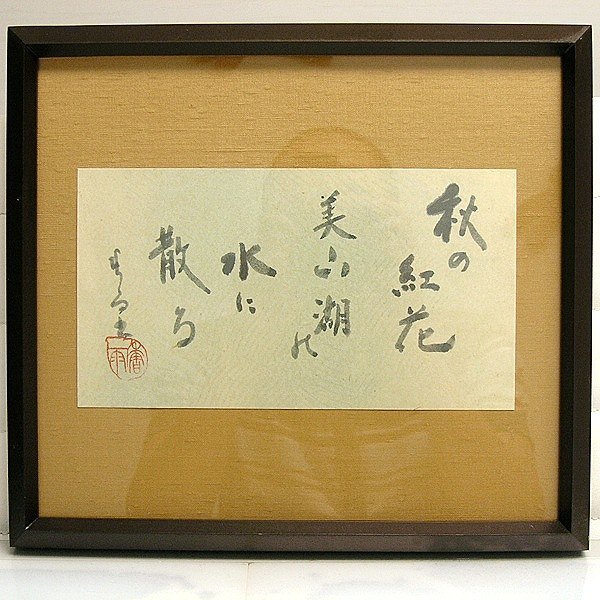 秋の
紅花
美山湖の
水に
散る